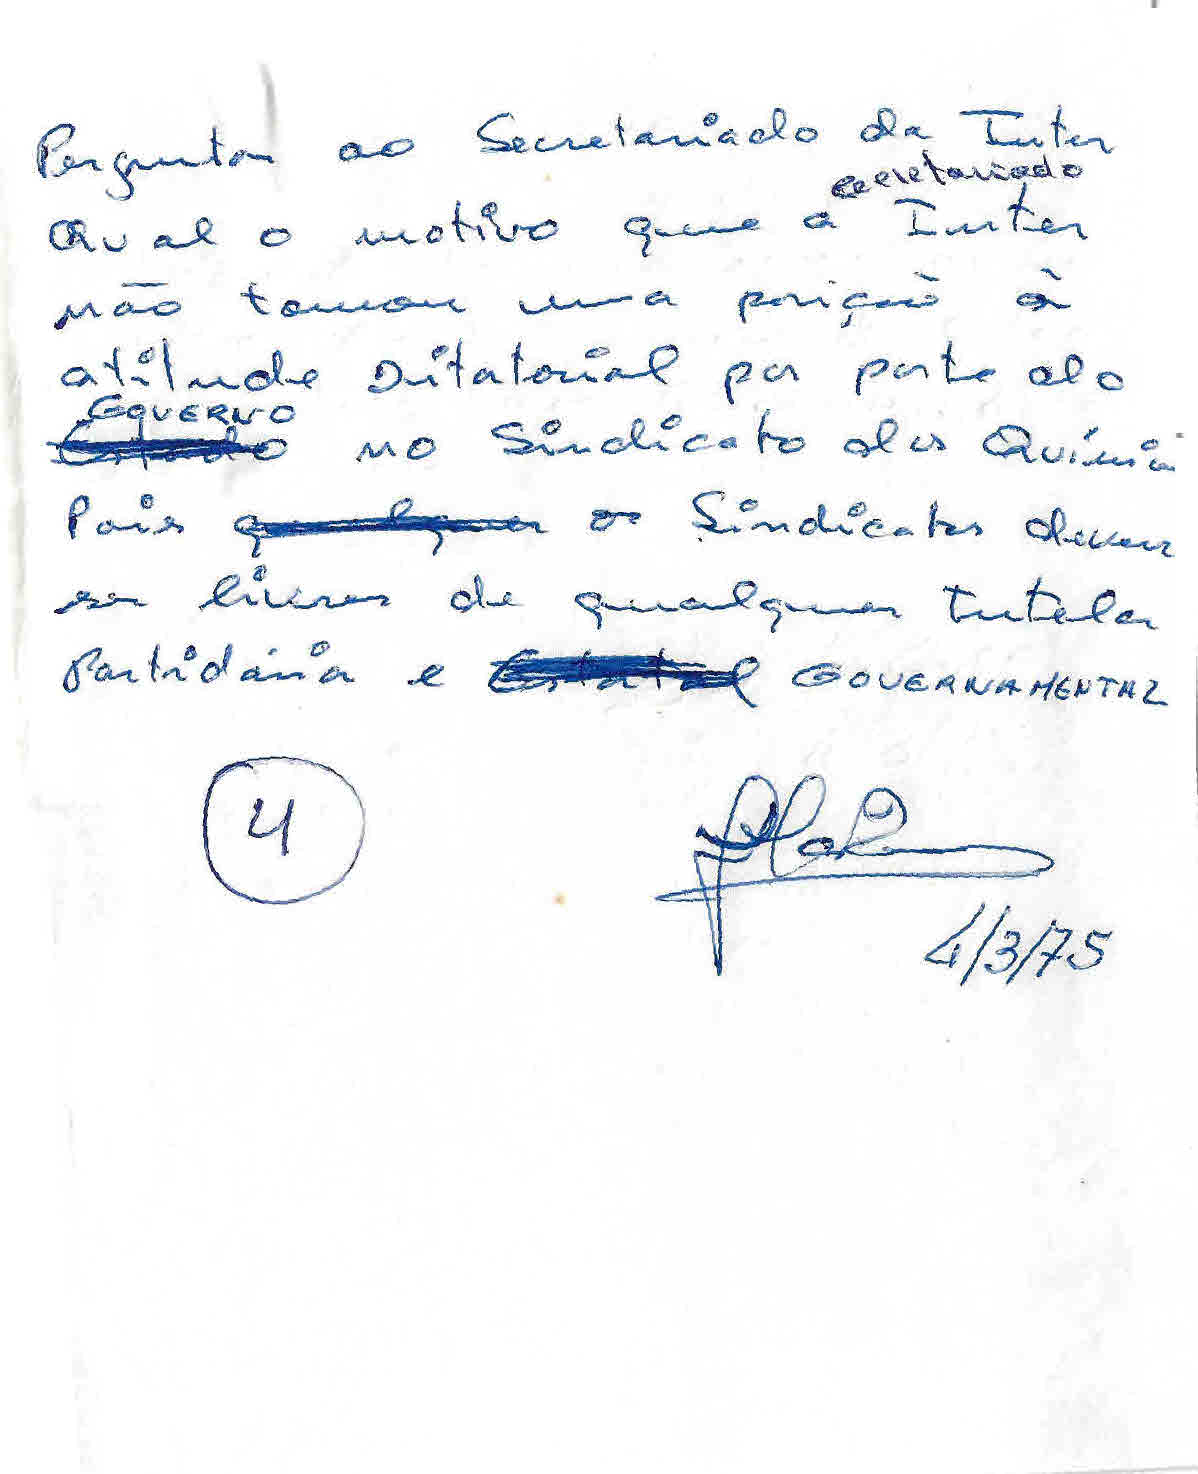 Perguntar ao Secretariado da Inter
secretariado
Qual o motivo que a Inter
não tomou uma posição à
atitude Ditatorial por parte do
GOVERNO
Estado no Sindicato dos Químic
Pois qualquer os Sindicatos devem
ser livres de qualquer tutela
Partidária e Estatal GOVERNAMENTAL
4
4/3/75